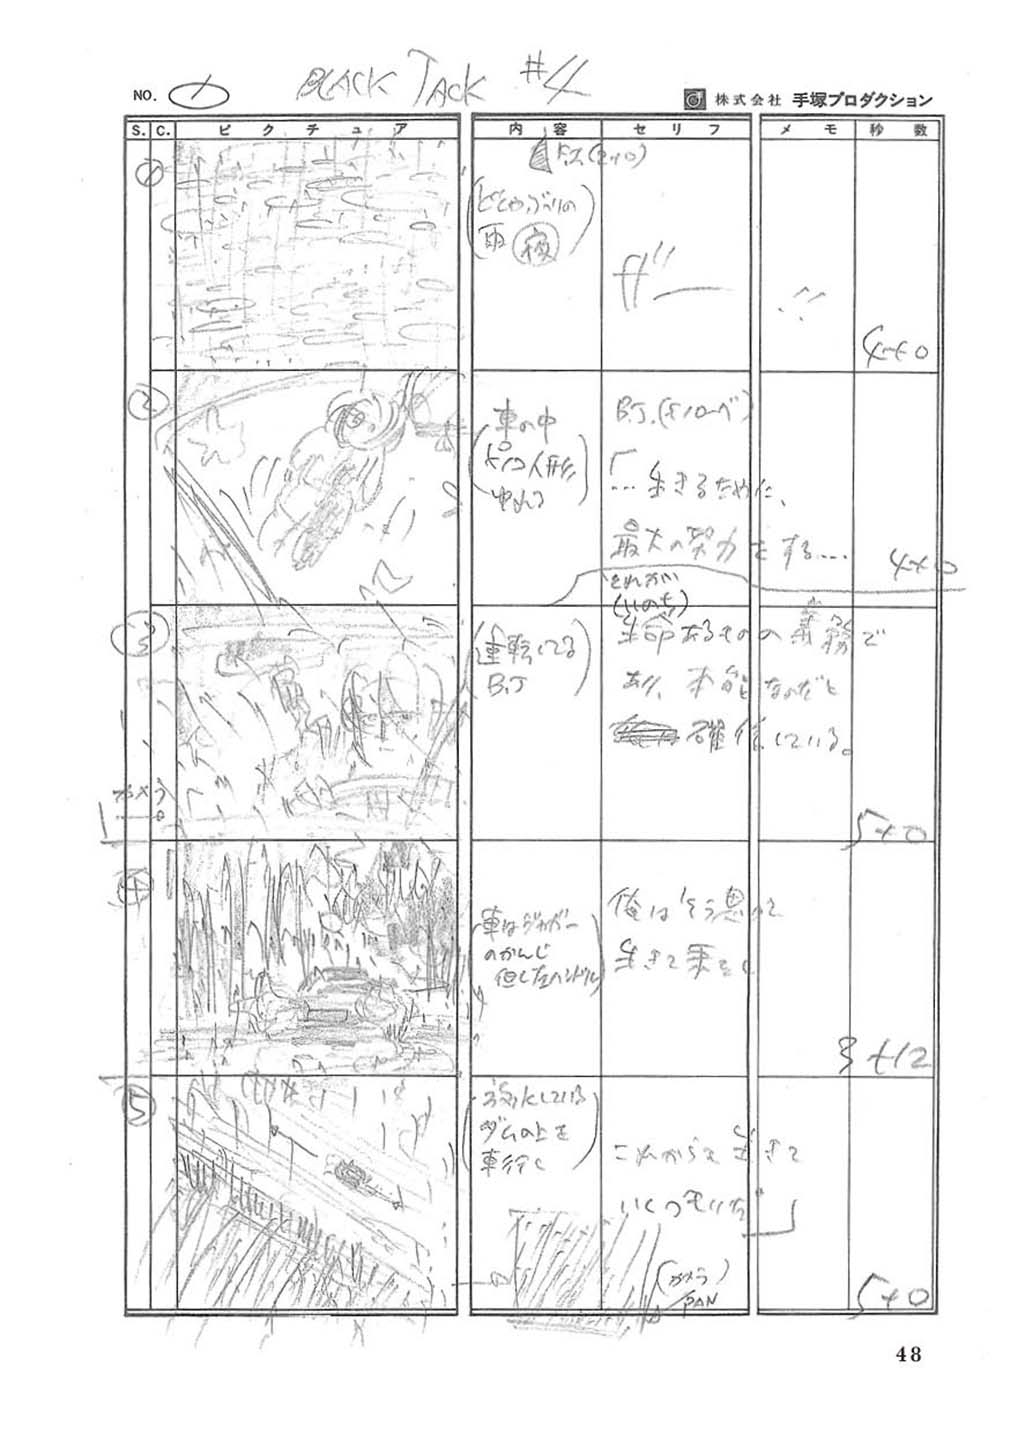 NO. 1
BLACK JACK #4
株式会社 手塚プロダクション
S. C. ピクチュア 内容 セリフ メモ 秒数
①
F.I. (2+0)
(どしゃぶりの
雨 夜)
4+0
②
車の中
(ピノコ人形
ゆれる)
B.J.(モノローグ)
「…生きるために、
最大の努力をする…
4+0
③
(運転してる
B.J)
それが
(いのち)
生命あるものの義務で
あり、本能なのだと
確信している。
カメラ
5+0
④
(車はジャガー
のかんじ
但し左ハンドル)
俺はそう思って
生きて来たし
3+12
⑤
(放水している
ダムの上を
車行く)
これからも生きて
いくつもりだ」
(カメラ)
PAN
5+0
48